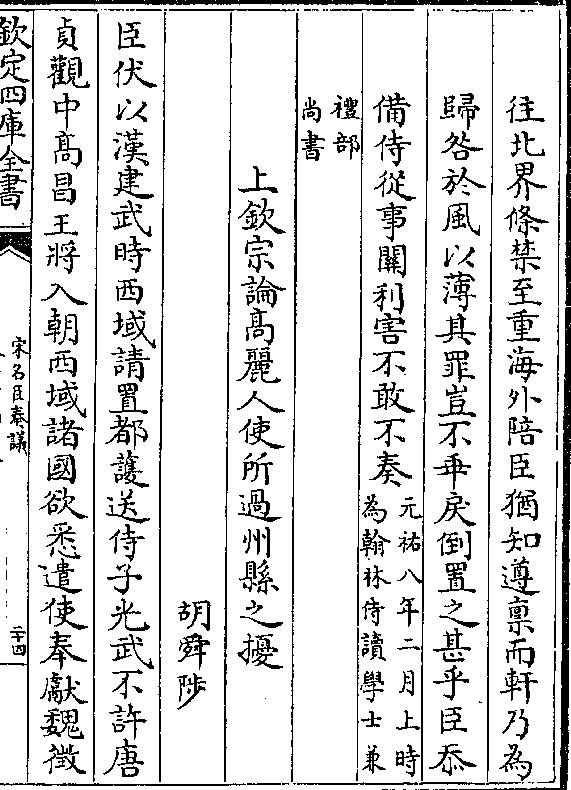 往北界條禁至重海外陪臣猶知遵禀而軒乃為
歸咎於風以薄其罪豈不乖戾倒置之甚乎臣忝
備侍從事關利害不敢不奏元祐八年二月上時
為翰林侍讀學士兼
禮部
尚書
上欽宗論髙麗人使所過州縣之擾
胡舜陟
臣伏以漢建武時西域請置都䕶送侍子光武不許唐
貞觀中髙昌王將入朝西域諸國欲悉遣使奉獻魏徵
欽定四庫全書
宋名臣奏議
二十四